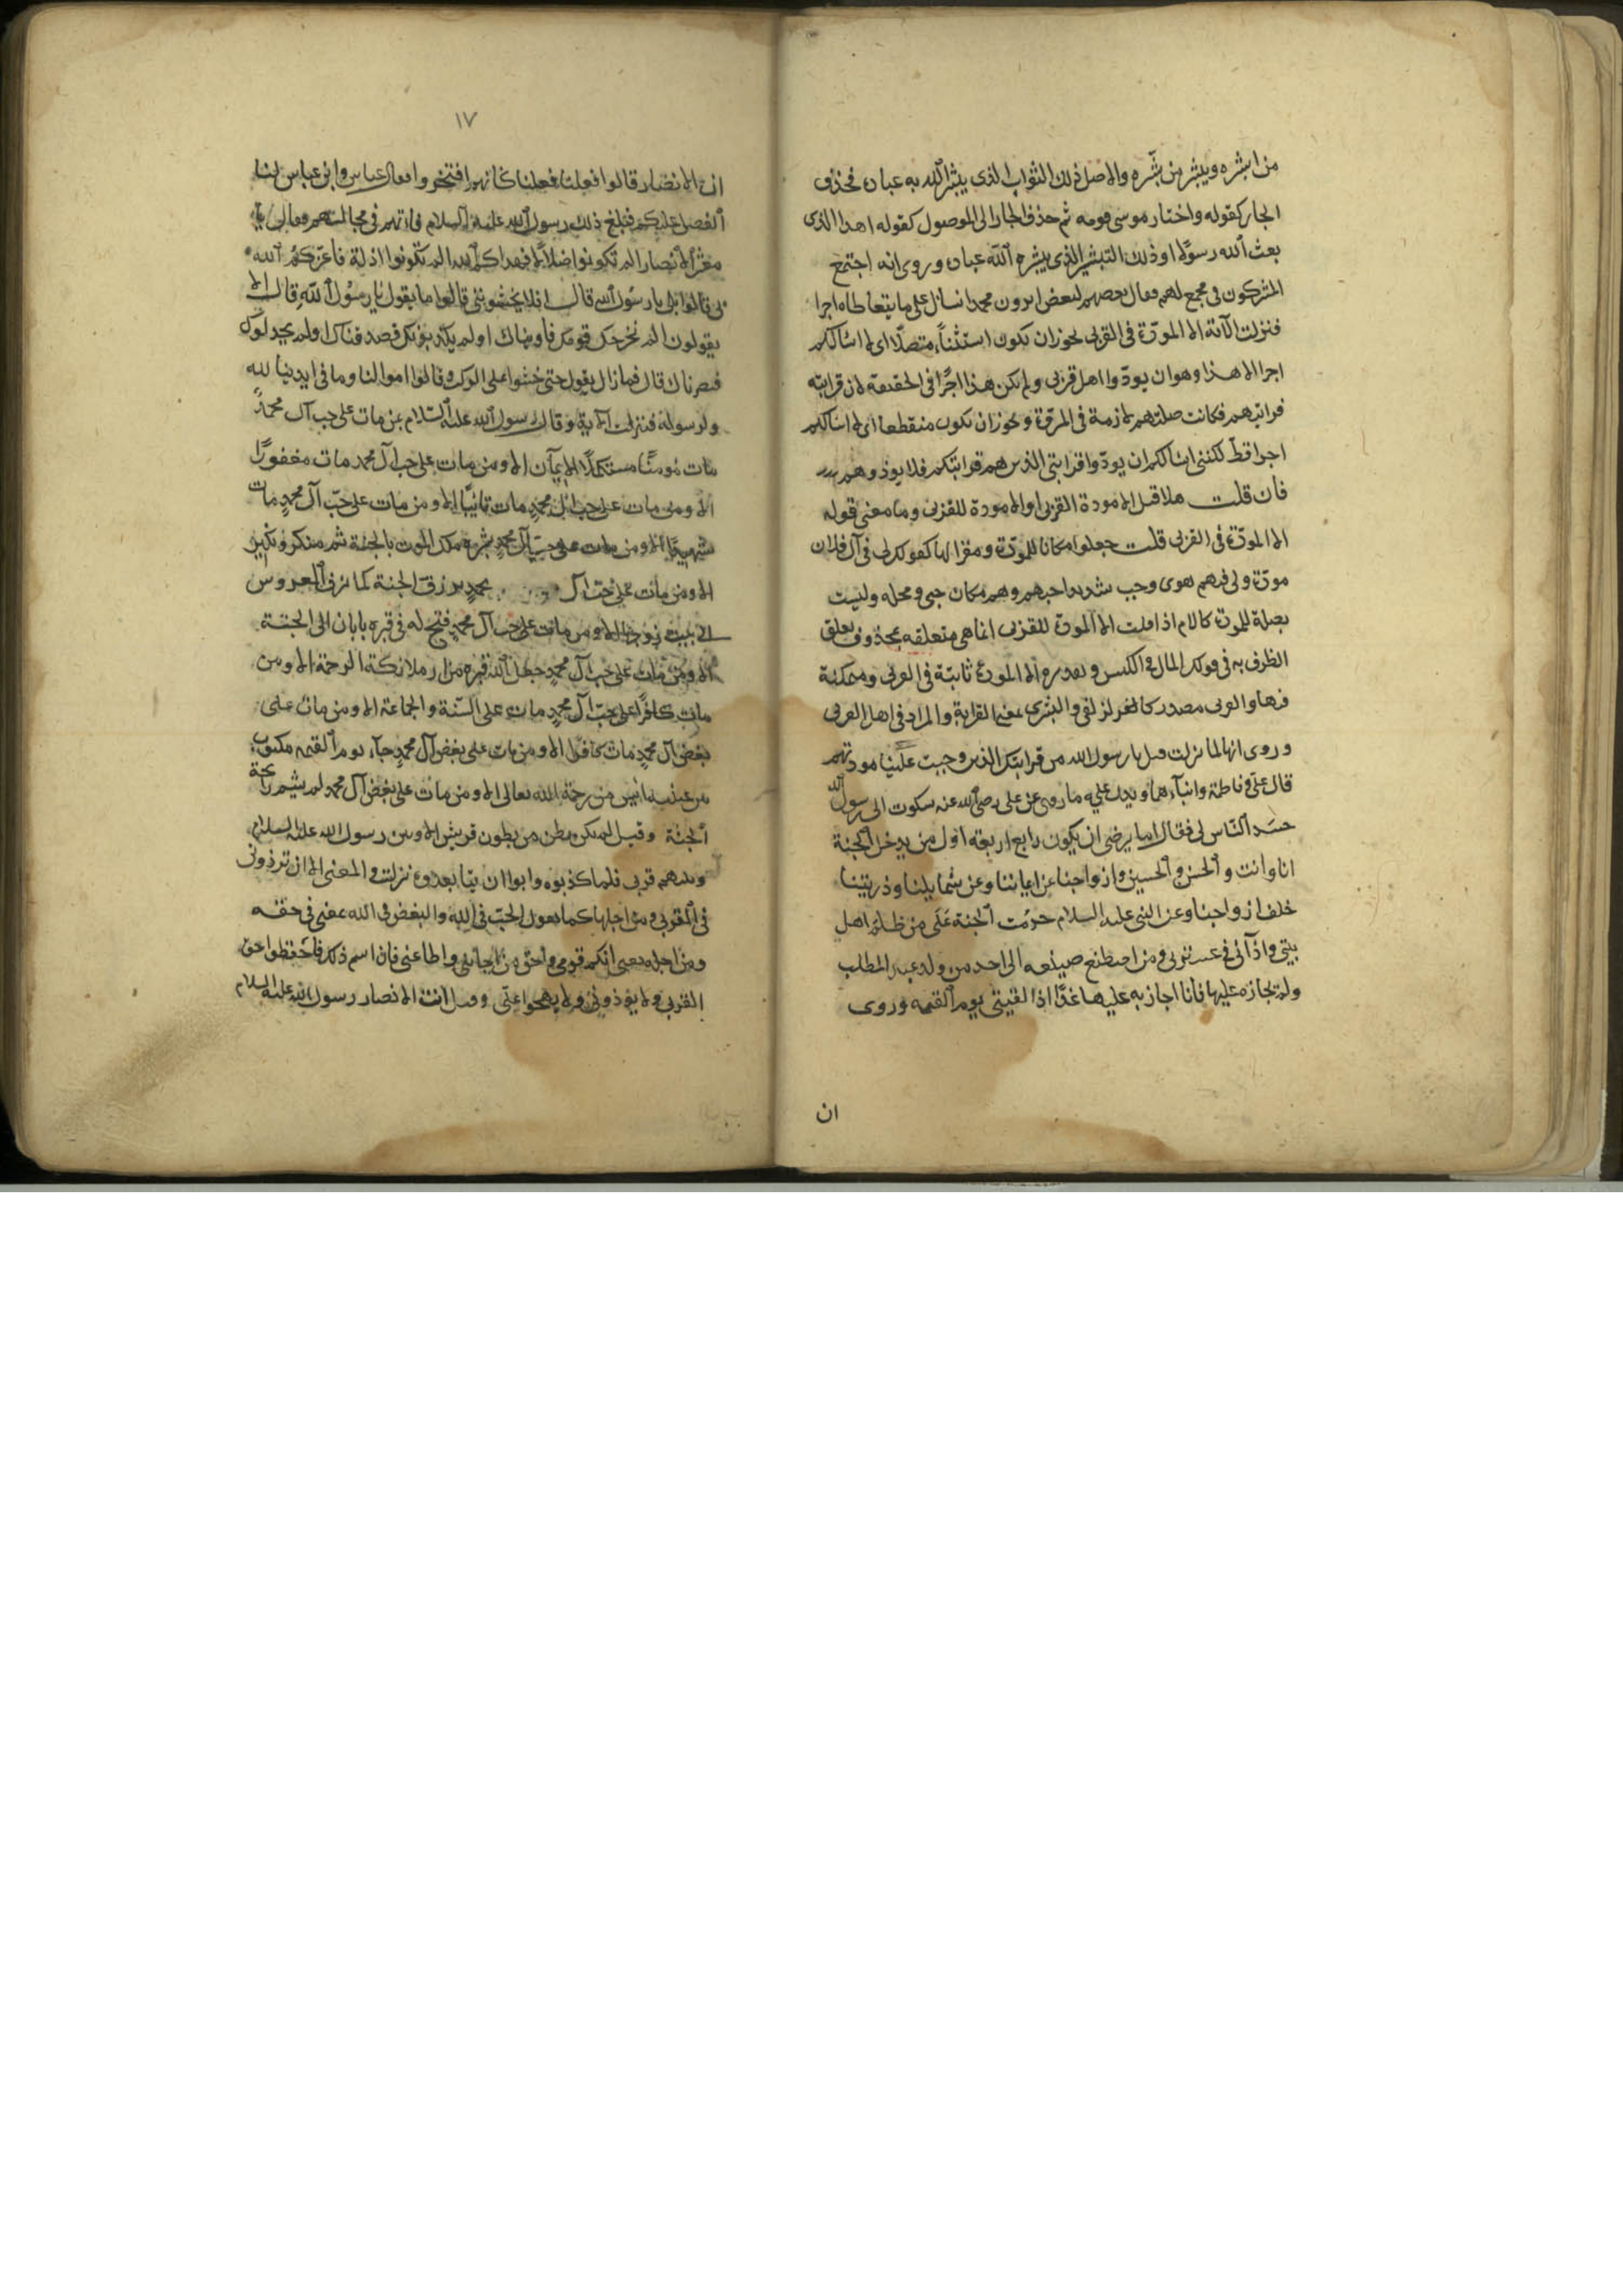 من ابشره ويبشر من بشّره والاصل ذلك الثواب الذى يبشر الله به عباده فحذف
الجار كقوله واختار موسى قومه ثم حذف الجار الى الموصول كقوله اهذا الذى
بعث الله رسولا او ذلك التبشير الذى يبشره الله عباده وروى انه اجتمع
المشركون فى مجمع لهم فقال بعضهم لبعض اترون محمدا نسائل على ما يتعاطاه اجرا
فنزلت الآية الا المودّة فى القربى يجوز ان يكون استثناءً متصلًا اى لا اسئالكم
اجرا الا هذا وهو ان يودّوا اهل قربى ولم يكن هذا اجرًا فى الحقيقة لان قرابته
قرابتهم فكانت صلتهم لازمة فى المروّة ويجوز ان يكون منقطعا اى لا اسالكم
اجرا قطّ لكننى اسالكم ان يودّوا قرابتى الذين هم قرابتكم فلا يوذوهم
فان قلت هلا قيل الا مودة القربى او الا مودة للقربى وما معنى قوله
الا المودّة فى القربى قلت جعلوا مكانا للمودّة ومقرا لها كقولك لى فى آل فلان
مودّة ولى فيهم هوى وحب شديد احبهم وهم مكان حبى ومحله وليست
بصلة للمودة كاللام اذا قلت الا المودّة للقربى انما هى متعلقة بمحذوف تعلق
الظرف به فى قولك المال فى الكيس وتقديره الا المودة ثابتة فى القربى ومتمكنة
فيها والقربى مصدر كالزلفى والبشرى بمعنى القرابة والمراد فى اهل القربى
وروى انها لما نزلت قيل يا رسول الله من قرابتك الذين وجبت علينا مودتهم
قال على وفاطمة وابناءهما ويدل عليه ما روى عن على رضى الله عنه سكوت الى رسول الله
حسد الناس لى فقال اما يرضى ان يكون رابع اربعة اول من يدخل الجنة
انا وانت والحسن والحسين وازواجنا عن ايماننا وعن شمايلنا وذريتنا
خلف ازواجنا وعن النبى عليه السلام حرّمت الجنة على من ظلم اهل
بيتى واذآنى فى عترتى ومن اصطنع صنيعه الى احد من ولد عبد المطلب
ولم يجازه عليها فانا اجازيه عليها غدًا اذا لقيتنى يوم القيمه وروى
ان
١٧
ان الانصار قالوا فعلنا فعلنا كانهم افتخروا فقال عباس وابن عباس لنا
الفضل عليكم فبلغ ذلك رسول الله عليه السلام فاتهم فى مجالستهم فقال يا
معشر الانصار الم تكونوا اذلة فاعزّكم الله
بى قالوا بلى يا رسول الله قال افلا قالوا ما يقول يا رسول الله قال الا
يقولون الم نخرجك قومك فآويناك او لم يكذبونك فصدقناك او لم يخذلوك
فنصرناك قال فما زال يقول حتى جثوا على الركب وقالوا اموالنا وما فى ايدينا لله
ولرسوله فنزلت الآية وقال رسول الله عليه السلام من مات على حب آل محمد
مات مؤمنًا مستكملًا الايمان الا ومن مات على حب آل محمد مات مغفورًا
الا ومن مات على حب آل محمد مات تائبًا الا ومن مات على حبّ آل محمد مات
شهيدًا الا ومن مات على حبّ آل محمد بشره ملك الموت بالجنة ثم منكر ونكير
الا ومن مات على حبّ آل محمد يزف الجنة كما تزف العروس
الى بيت زوجها الا ومن مات على حب آل محمد فتح له فى قبره بابان الى الجنة
الا ومن مات على حب آل محمد جعل الله قبره مزار ملائكة الرحمة الا ومن
مات على حبّ آل محمد مات على السنّة والجماعة الا ومن مات على
بغض آل محمد مات كافرًا الا ومن مات على بغض آل محمد جآء يوم القيمه مكتوب
بين عينيه ائيس من رحمة الله تعالى الا ومن مات على بغض آل محمد لم يشم رايحة
الجنة وقيل لم يكن بطن من بطون قريش الا وبين رسول الله عليه السلام
وبينهم قربى فلما كذبوه وابوا ان يبايعوه نزلت والمعنى الا ان تودّونى
فى القربى ومن اجلها كما يقول الحبّ فى الله والبغض فى الله بمعنى فى حقه
ومن اجله يعنى انكم قومى واحق من اجابنى واطاعنى فاذا ابيتم ذلك فاحفظوا حق
القربى ولا يوذونى ولا يهيجوا على وقيل اتت الانصار رسول الله عليه السلام